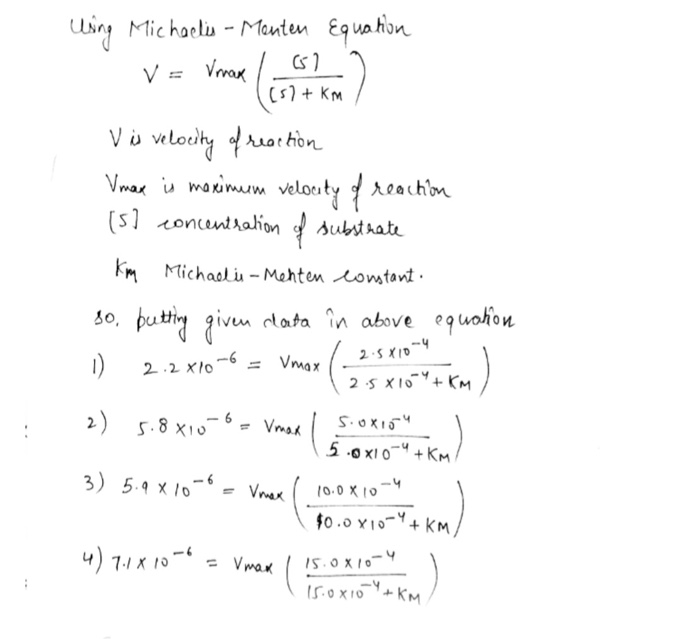 Using Michaelis - Menten Equation
V = Vmax ( [S] / [S] + KM )
V is velocity of reaction
Vmax is maximum velocity of reaction
[S] concentration of substrate
KM Michaelis - Menten constant.
so, putting given data in above equation
1) 2.2 x10⁻⁶ = Vmax ( 2.5 x10⁻⁴ / 2.5 x10⁻⁴ + KM )
2) 5.8 x10⁻⁶ = Vmax ( 5.0x10⁻⁴ / 5.0x10⁻⁴ + KM )
3) 5.9 x 10⁻⁶ = Vmax ( 10.0 x 10⁻⁴ / 10.0 x10⁻⁴ + KM )
4) 7.1 x 10⁻⁶ = Vmax ( 15.0 x 10⁻⁴ / 15.0 x10⁻⁴ + KM )